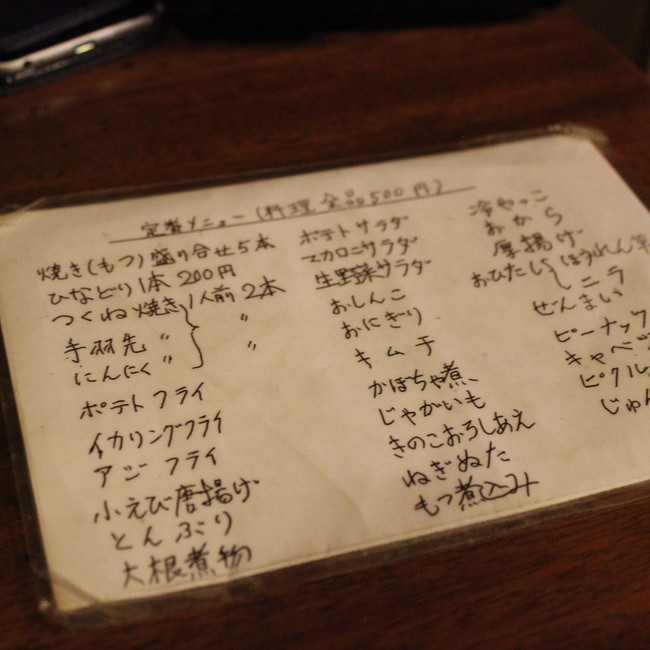 定番メニュー(料理全品500円)
焼き(もつ)盛り合せ5本
ひなどり1本200円
つくね焼き 1人前2本
手羽先 〃 〃
にんにく 〃 〃
ポテトフライ
イカリングフライ
アジフライ
小えび唐揚げ
とんぶり
大根煮物
ポテトサラダ
マカロニサラダ
生野菜サラダ
おしんこ
おにぎり
キムチ
かぼちゃ煮
じゃがいも
きのこおろしあえ
ねぎぬた
もつ煮込み
冷やっこ
おから
厚揚げ
おひたし ほうれん草
ニラ
ぜんまい
ピーナッツ
キャベツ
ピクル
じゅん